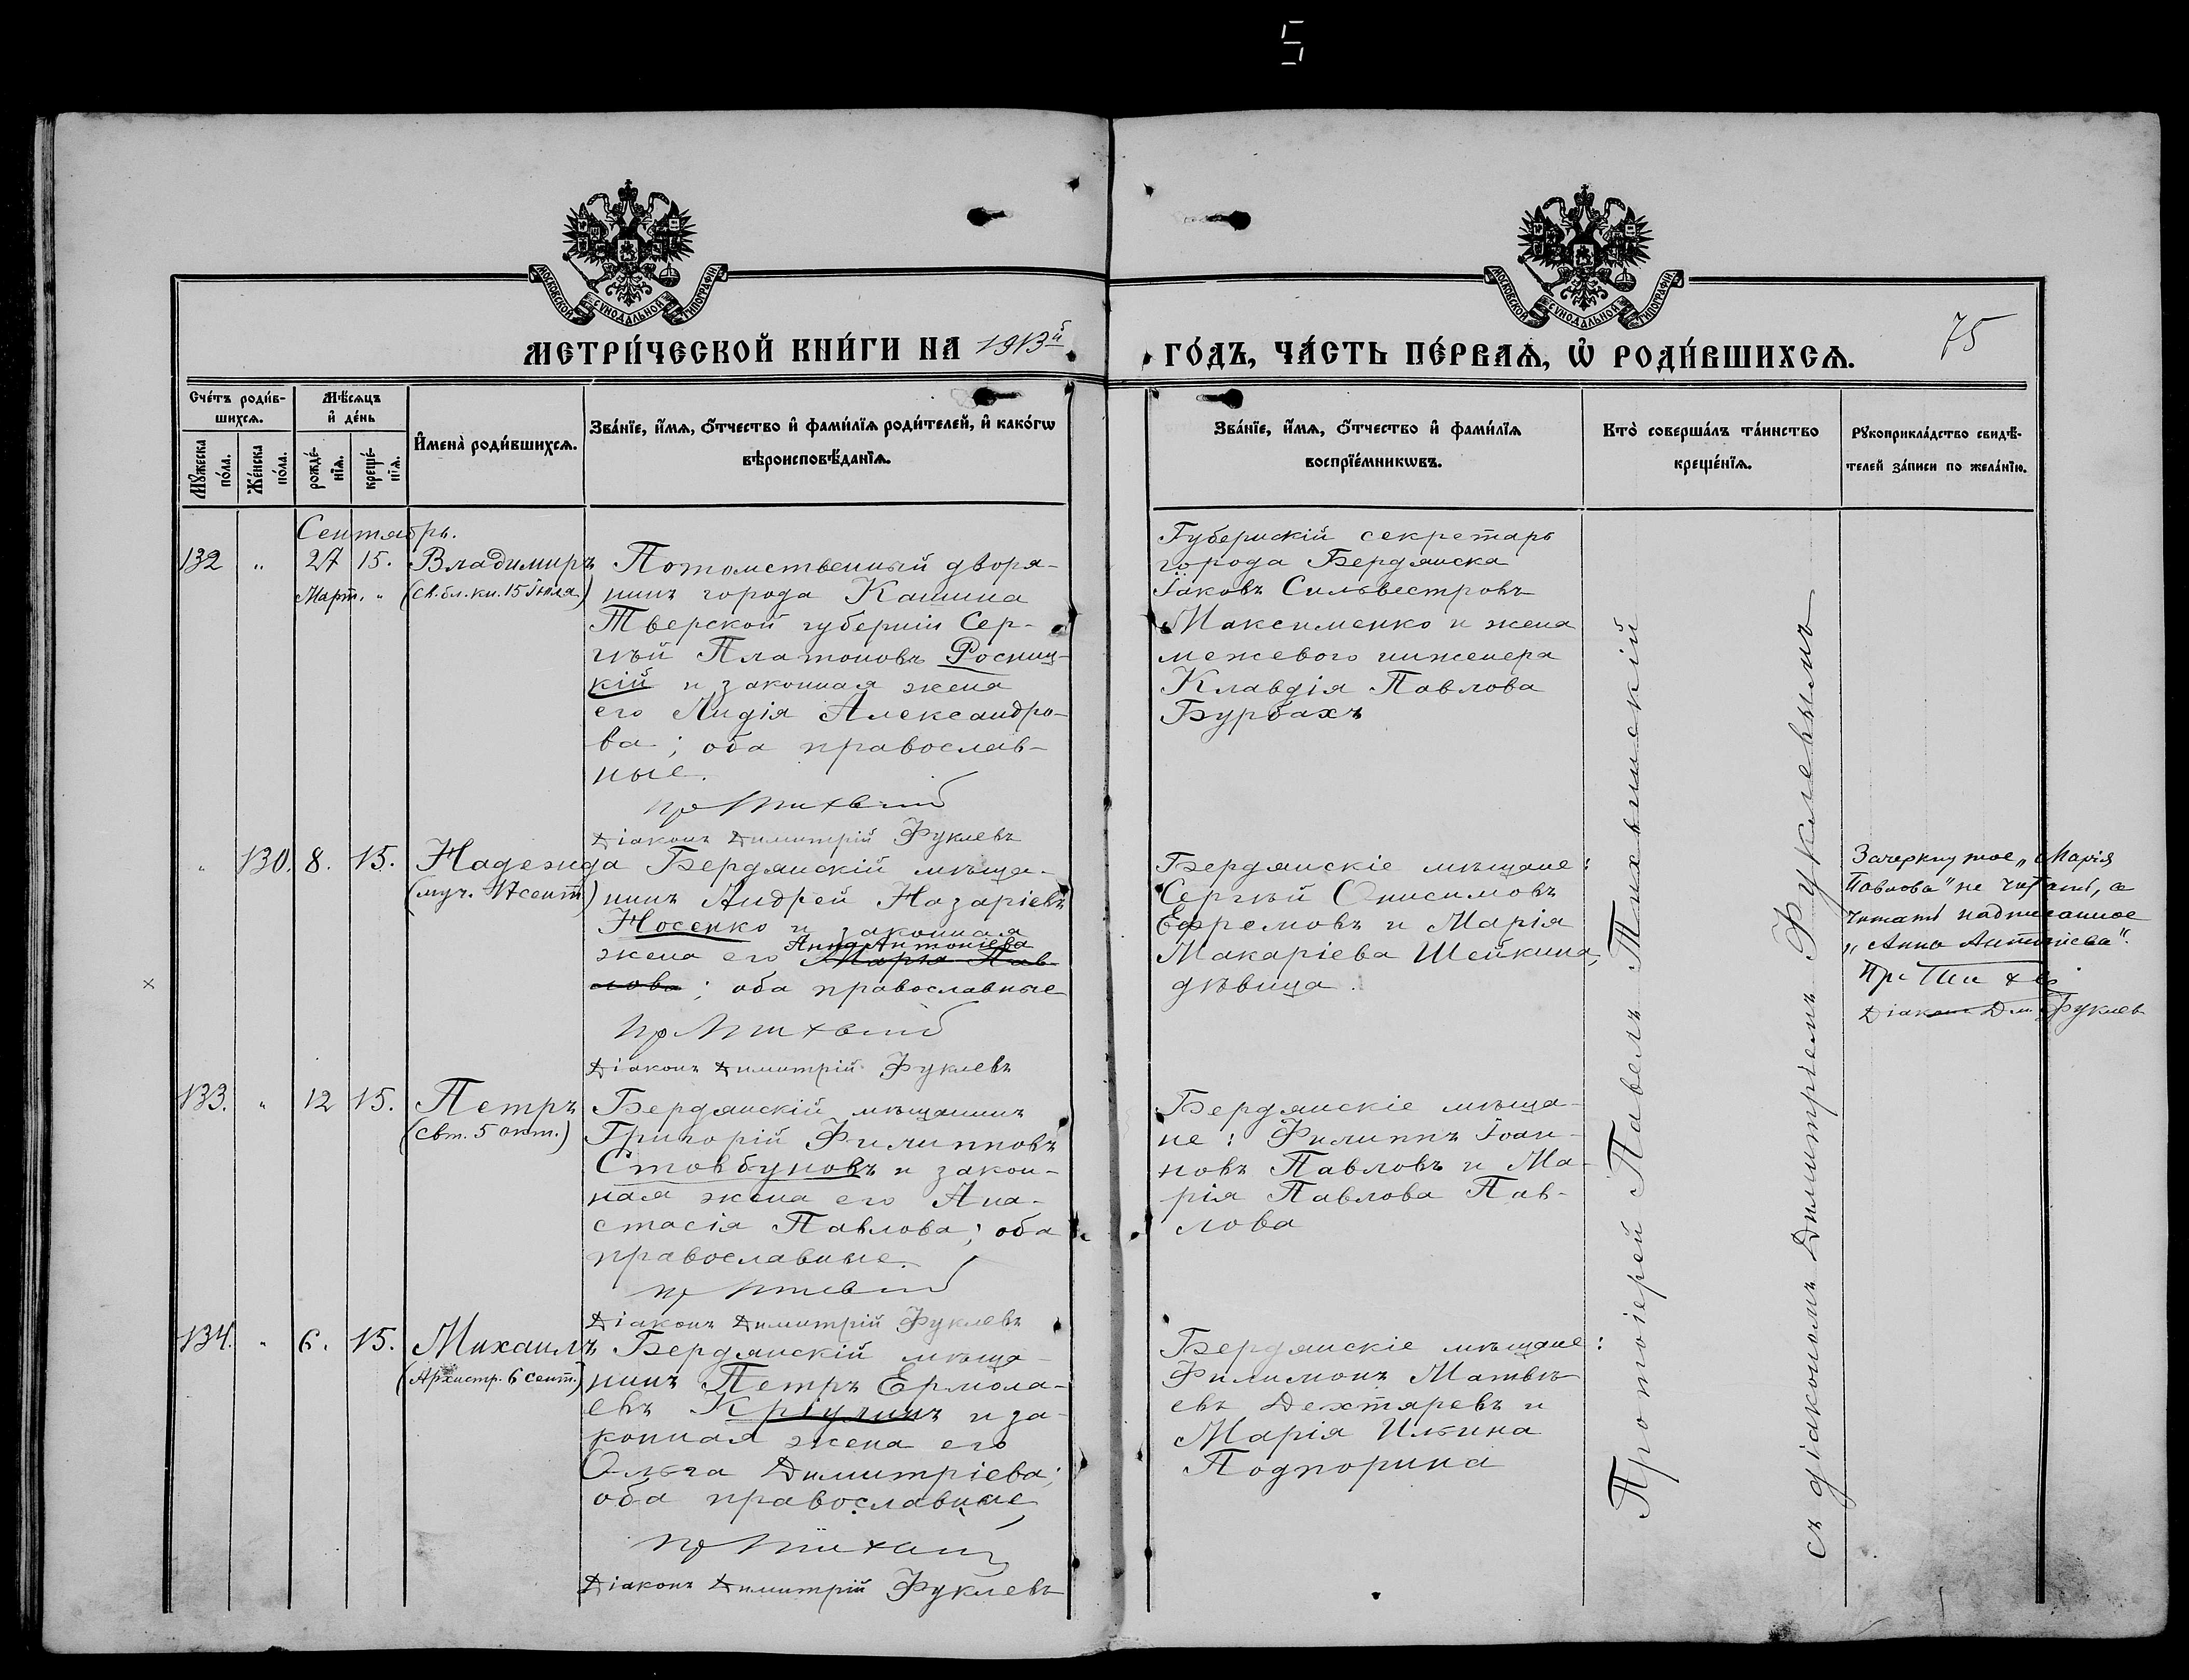 5
МОСКОВСКОЙ СѴНОДАЛЬНОЙ ТИПОГРАФІИ
МОСКОВСКОЙ СѴНОДАЛЬНОЙ ТИПОГРАФІИ
МЕТРИ́ЧЕСКОЙ КНИ́ГИ НА 1913й
ГО́ДЪ, ЧА́СТЬ ПЕ́РВАѦ, Ѡ҆ РОДИ́ВШИХСѦ.
75
Сче́тъ роди́в-
шихсѧ.
Мѣ́сѧцъ
и҆ де́нь
Мꙋ́жеска
по́ла.
Же́нска
по́ла.
рожде́-
нїѧ.
креще́-
нїѧ.
И҆мена̀ роди́вшихсѧ.
Зва́нїе, и҆́мѧ, ѻ҆́тчество и҆ фами́лїѧ роди́телей, и҆ како́гѡ
вѣроисповѣ́данїѧ.
Зва́нїе, и҆́мѧ, ѻ҆́тчество и҆ фами́лїѧ
воспрїе́мникѡвъ.
Кто̀ соверша́лъ та́инство
креще́нїѧ.
Рꙋкоприкла́дство свидѣ́-
телей за́писи по жела́нїю.
Сентябрь.
132 " 27 15. Владимиръ
Март. " (св. бл. кн. 15 Іюля)
Потомственный дворя-
нинъ города Кашина
Тверской губерніи Сер-
гѣй Платоновъ Росниц-
кій и законная жена
его Лидія Александро-
ва; оба православ-
ные.
Діаконъ Димитрій Фуклевъ
Губернскій секретарь
города Бердянска
Іаковъ Сильвестровъ
Максименко и жена
межевого инженера
Клавдія Павлова
Бурбахъ
" 130. 8. 15. Надежда
(муч. 17 сент.)
Бердянскій мѣща-
нинъ Андрей Назаріевъ
Носенко и законная
Анна Антоніева
жена его Марія Пав-
лова; оба православные
Діаконъ Димитрій Фуклевъ
Бердянскіе мѣщане:
Сергѣй Онисимовъ
Ефремовъ и Марія
Макаріева Шейкина,
дѣвица.
Зачеркнутое „Марія
Павлова" не читать, а
читать надписанное
„Анна Антоніева".
Діаконъ Дм. Фуклевъ
133. " 12 15. Петръ
(свт. 5 окт.)
Бердянскій мѣщанинъ
Григорій Филипповъ
Стовбуновъ и закон-
ная жена его Ана-
стасія Павлова; оба
православные.
Діаконъ Димитрій Фуклевъ
Бердянскіе мѣща-
не: Филиппъ Іоан-
новъ Павловъ и Ма-
рія Павлова Пав-
лова
134. " 6. 15. Михаилъ
(Архистр. 6 сент.)
Бердянскій мѣща-
нинъ Петръ Ермола-
евъ Кріулинъ и за-
конная жена его
Ольга Димитріева;
оба православные
Діаконъ Димитрій Фуклевъ
Бердянскіе мѣщане:
Филимонъ Матвѣ-
евъ Дехтяревъ и
Марія Ильина
Подпорина
Протоіерей Павелъ Тихвинскій
съ діакономъ Димитріемъ Фуклевымъ